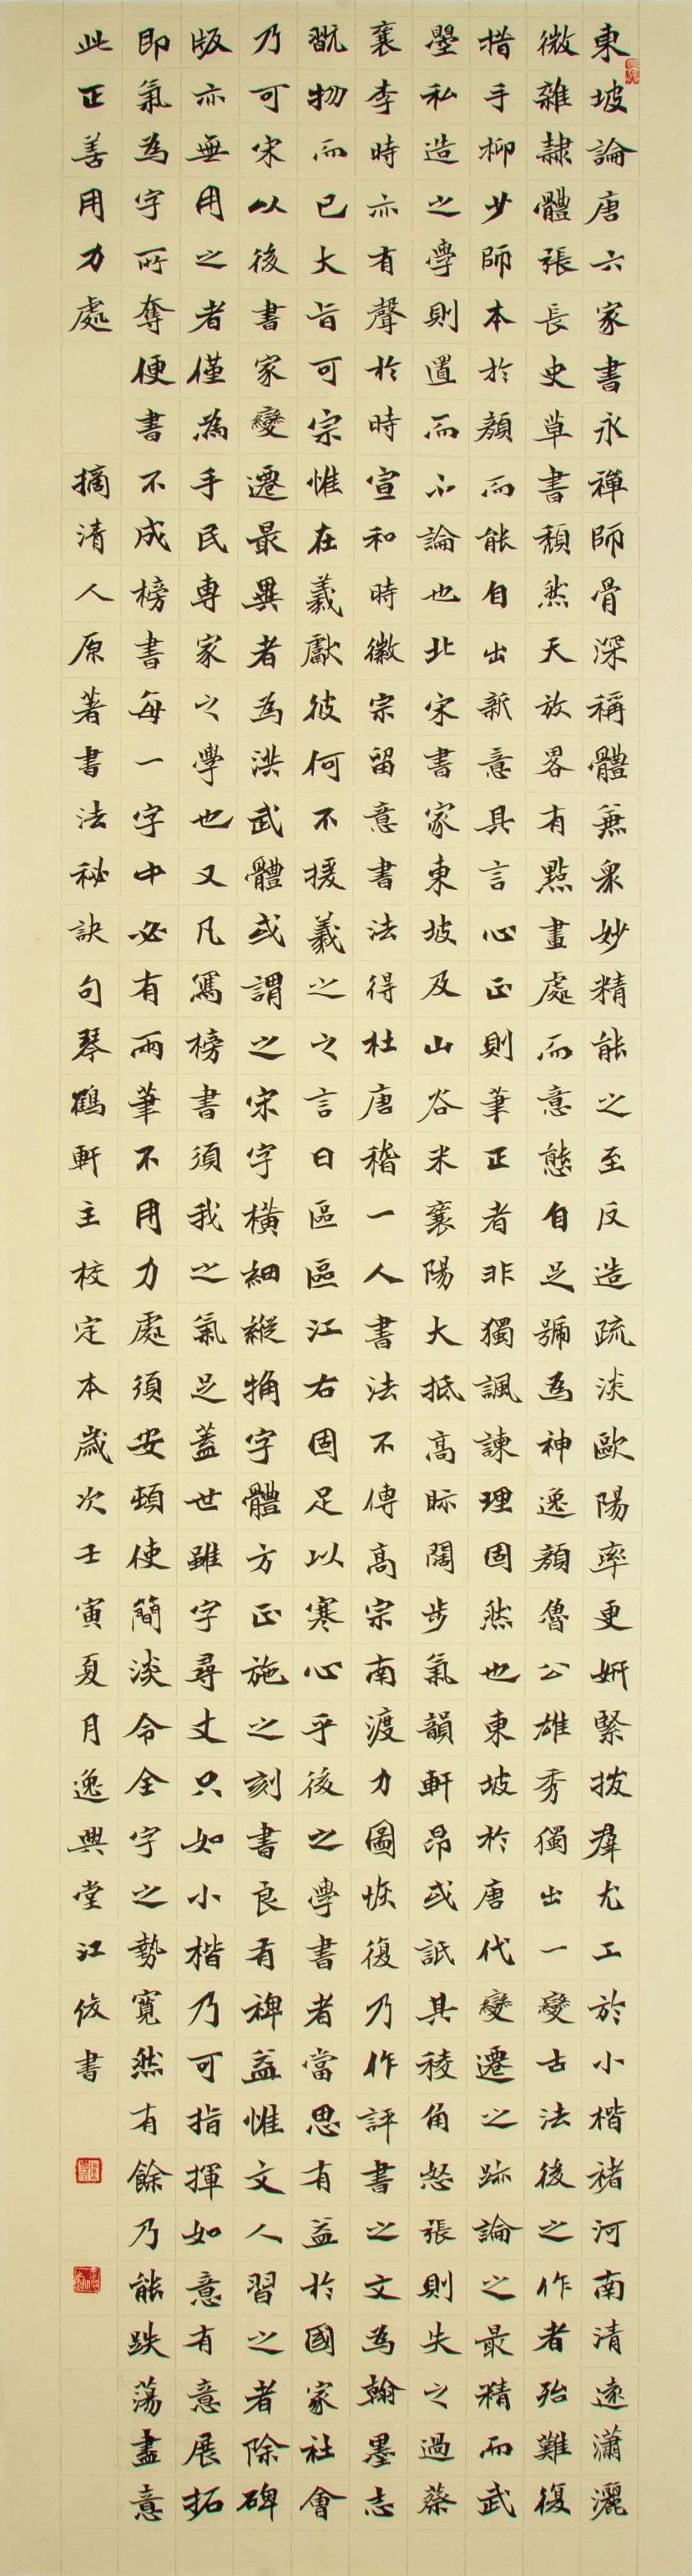 東坡論唐六家書永禪師骨深稱體兼衆妙精能之至反造疏淡歐陽率更妍緊拔羣尤工於小楷褚河南清遠瀟灑
微雜隸體張長史草書頹然天放畧有點畫處而意態自足號為神逸顏魯公雄秀獨出一變古法後之作者殆難復
措手柳少師本於顏而能自出新意其言心正則筆正者非獨諷諫理固然也東坡於唐代變遷之跡論之最精而武
曌私造之學則置而不論也北宋書家東坡及山谷米襄陽大抵高眎闊步氣韻軒昂或詆其稜角怒張則失之過蔡
襄李時亦有聲於時宣和時徽宗留意書法得杜唐稽一人書法不傳高宗南渡力圖恢復乃作評書之文為翰墨志
翫物而已大旨可宗惟在羲獻彼何不援羲之之言曰區區江右固足以寒心乎後之學書者當思有益於國家社會
乃可宋以後書家變遷最異者為洪武體或謂之宋字橫細縱觕字體方正施之刻書良有裨益惟文人習之者除碑
版亦無用之者僅為手民專家之學也又凡寫榜書須我之氣足蓋世雖字尋丈只如小楷乃可指揮如意有意展拓
即氣為字所奪便書不成榜書每一字中必有兩筆不用力處須安頓使簡淡令全字之勢寬然有餘乃能跌蕩盡意
此正善用力處 摘清人原著書法秘訣句琴鶴軒主校定本歲次壬寅夏月逸興堂江俊書